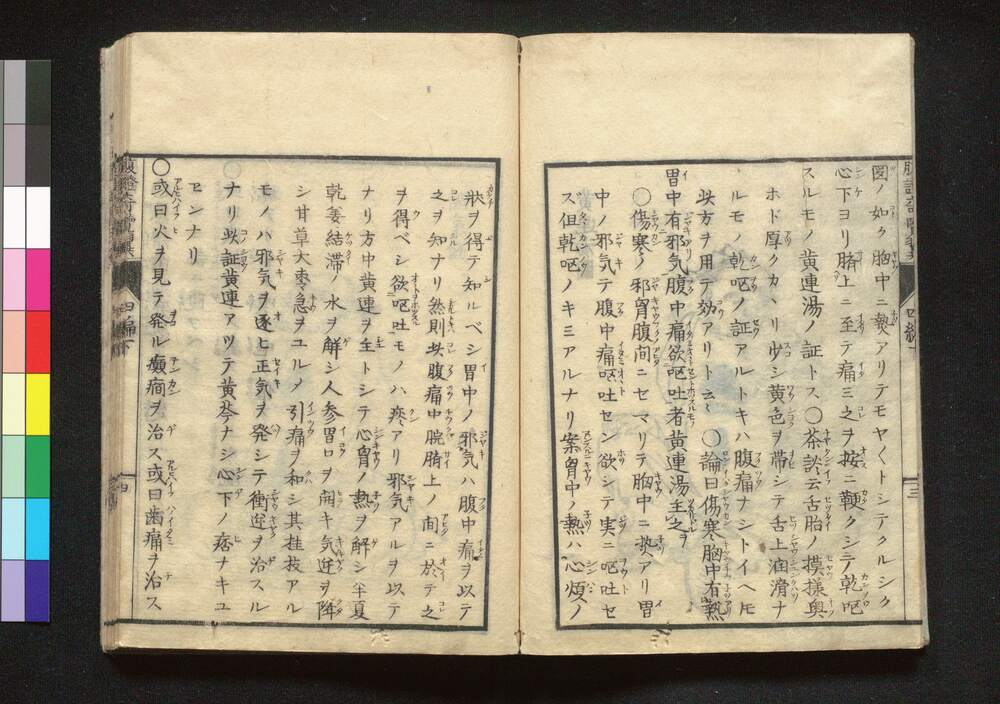 圏ノ如ク胸中ニ熱アリテモヤクトシテクルシク
心下ヨリ臍上ニ至テ痛ミ之ヲ按ニ鞕クシテ乾呕
スルモノ黄連湯ノ証トス〇茶談云舌胎ノ摸様奥
ホド厚クカヽリ少シ黄色ヲ帯シテ舌上潤滑ナ
ルモノ乾呕ノ証アルトキハ腹痛ナシトイヘ𪜈
此方ヲ用テ効アリト云云〇論曰傷寒胸中有熱
胃中有邪気腹中痛欲呕吐者黄連湯主之
〇傷寒ノ邪胃腹間ニセマリテ胸中ニ熱アリ胃
中ノ邪気テ腹中痛呕吐セン欲シテ実ニ呕吐セ
ズ但乾呕ノキミアルナリ案胃中ノ熱ハ心煩ノ
腹證奇覧翼 四編下
三
状ヲ得テ知ルベシ胃中ノ邪気ハ腹中痛ヲ以テ
之ヲ知ナリ然則此腹痛中脘臍上ノ間ニ於テ之
ヲ得ベシ欲呕吐モノハ痰アリ邪気アルヲ以テ
ナリ方中黄連ヲ主トシテ心胸ノ熱ヲ解シ半夏
乾姜結滞ノ水ヲ解シ人参胃口ヲ開キ気逆ヲ降
シ甘草大棗急ヲユルメ引痛ヲ和シ其桂枝アル
モノハ邪気ヲ逐ヒ正気ヲ発シテ衝逆ヲ治スル
ナリ此証黄連アツテ黄芩ナシ心下ノ痞ナキユ
ヱンナリ
〇或曰火ヲ見テ発ル癲癇ヲ治ス或曰歯痛ヲ治ス
腹證奇覧翼 四編下
四